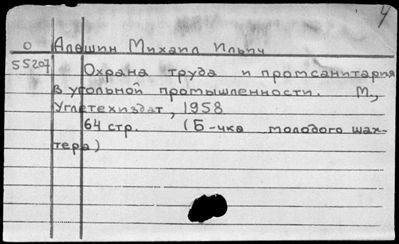 4
О Алешин Михаил Ильич
55207 Охрана труда и промсанитария
в угольной промышленности. М.,
Углетехиздат, 1958
64 стр. (Б-чка молодого шах-
тера)